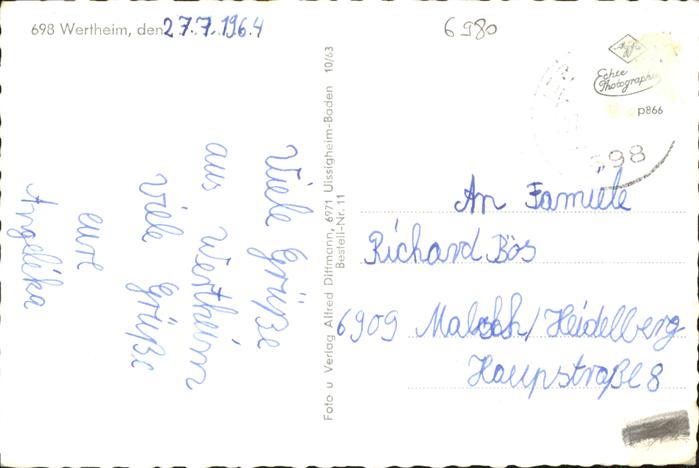 698 Wertheim, den 27.7.1964
6980
Agfa
Echte
Photographie
p866
698
Viele Grüße
aus Wertheim
Viele Grüße
eure
Angelika
Foto u Verlag Alfred Dittmann, 6971 Uissigheim-Baden 10/63
Bestell-Nr. 11
An Familie
Richard Bös
6909 Malsch/Heidelberg
Haupstraße 8